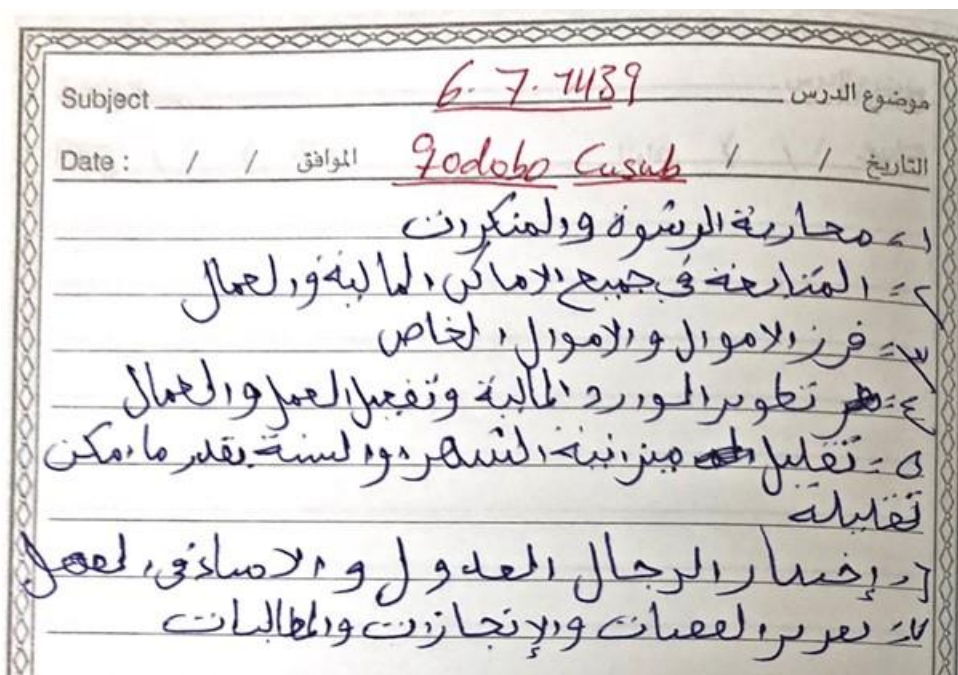 Subject 6.7.1439 موضوع الدرس
Date : / / الموافق / / Qodobo Cusub / / التاريخ
١- محاربة الرشوة والمنكرات
٢- المتابعة في جميع الاماكن المالية والعمال
٣- فرز الاموال والاموال الخاص
٤- تطوير المورد المالية وتفعيل العمل والعمال
٥- تقليل ميزانية الشهر او السنة بقدر ما امكن
تقليلة
٦- إختيار الرجال العدول و في العمل
٧- والإنجازات والمطالبات